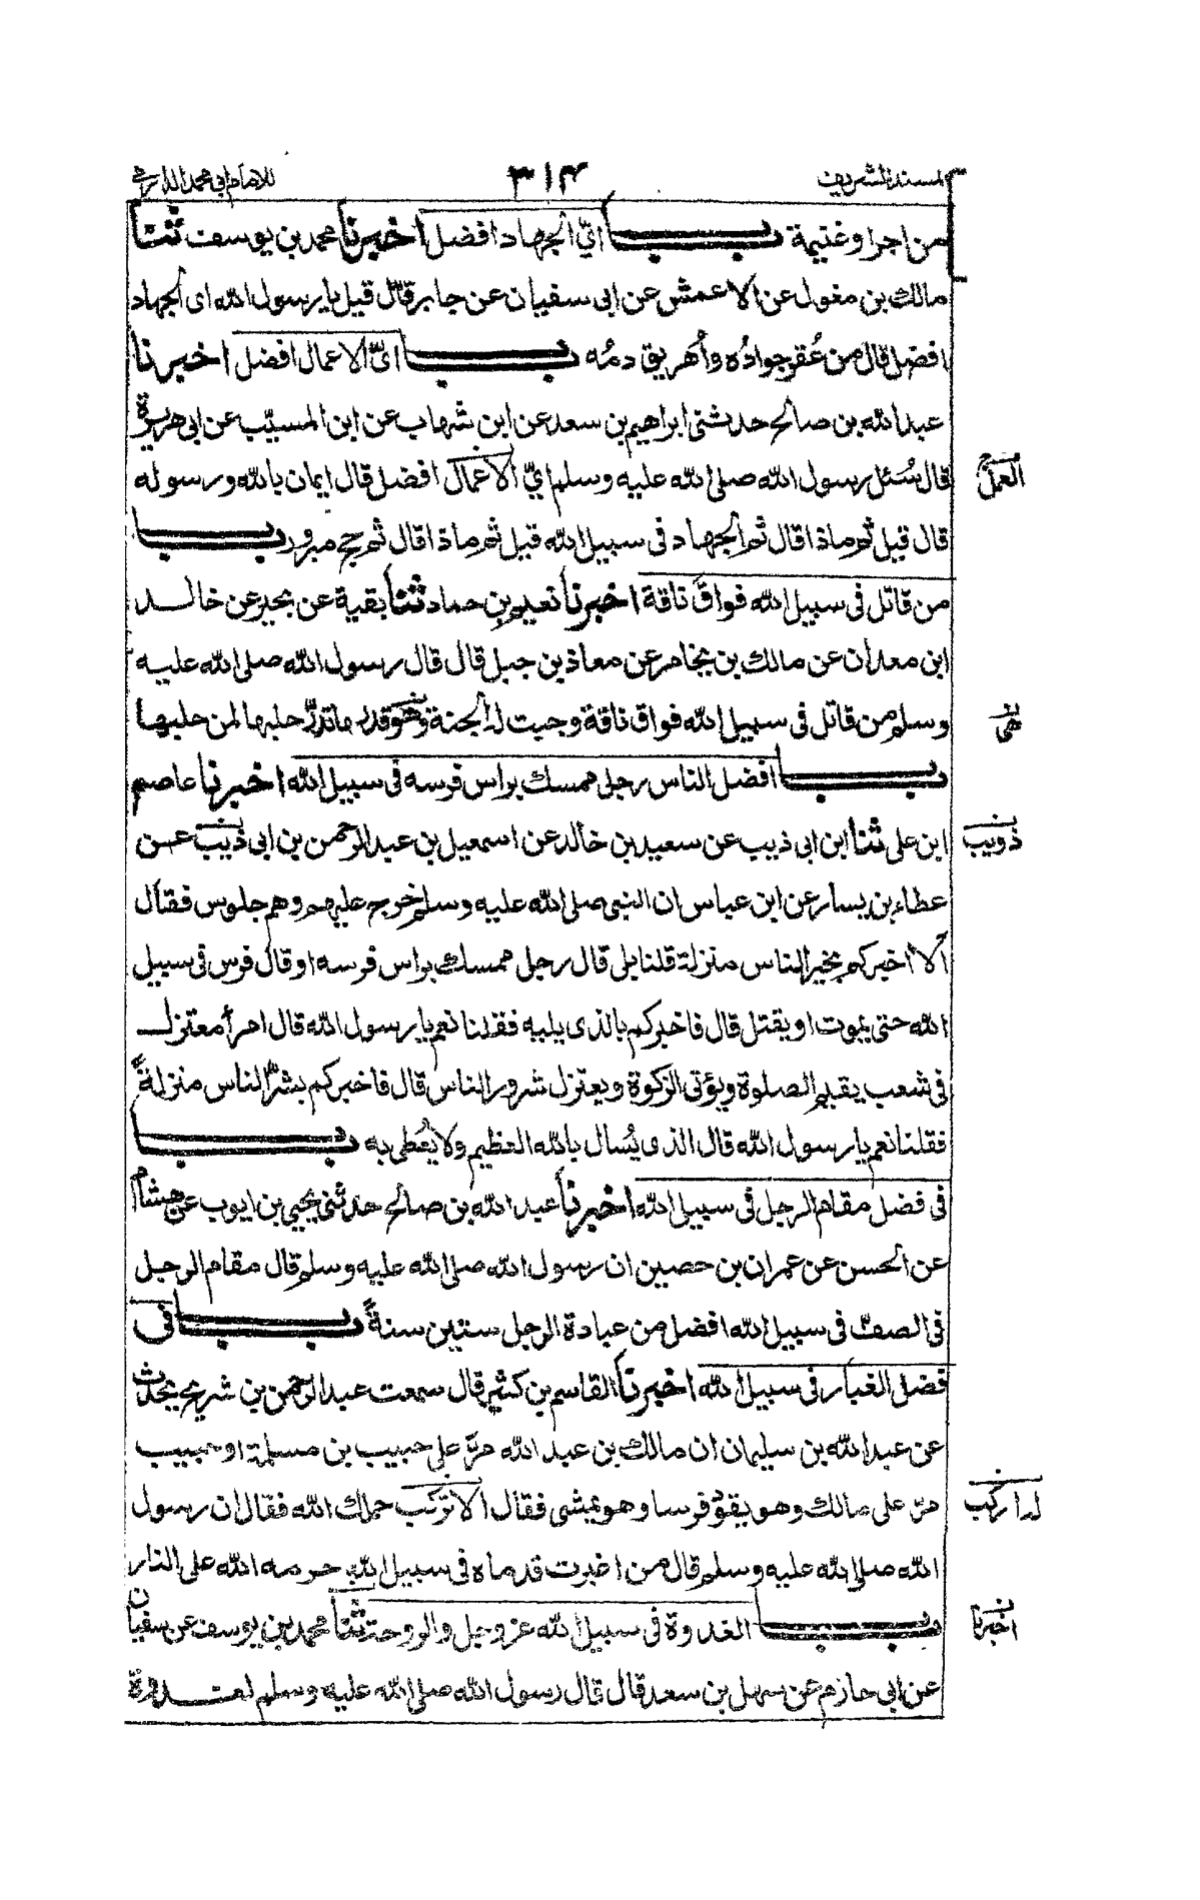 المسند الشريف ٣١٤ للامام ابی محمد الدارمی
من اجرا وغنيمة باب ایّ الجهاد افضل اخبرنا محمد بن يوسف ثنا
مالك بن مغول عن الاعمش عن ابی سفيان عن جابر قال قيل يا رسول الله ای الجهاد
افضل قال من عُقر جوادُه وأُهريق دمُه باب ایّ الاعمال افضل اخبرنا
عبد الله بن صالح حدثنی ابراهيم بن سعد عن ابن شهاب عن ابن المسيّب عن ابی هريرة
قال سُئل رسول الله صلی الله عليه وسلم ایّ الاعمال افضل قال ايمان بالله ورسوله
العمل
قال قيل ثم ماذا قال ثم الجهاد فی سبيل الله قيل ثم ماذا قال ثم حج مبرور باب
من قاتل فی سبيل الله فواق ناقة اخبرنا نعيم بن حماد ثنا بقية عن بحير عن خالد
ابن معدان عن مالك بن يخامر عن معاذ بن جبل قال قال رسول الله صلی الله عليه
وسلم من قاتل فی سبيل الله فواق ناقة وجبت له الجنة وهو قدر ماتدرّ حلبها لمن حلبها
هی
باب افضل الناس رجل ممسك براس فرسه فی سبيل الله اخبرنا عاصم
ابن علی ثنا ابن ابی ذيب عن سعيد بن خالد عن اسمعيل بن عبد الرحمن بن ابی ذيب عن
ذويب
عطاء بن يسار عن ابن عباس ان النبی صلی الله عليه وسلم خرج عليهم وهم جلوس فقال
الا اخبركم بخير الناس منزلة قلنا بلی قال رجل ممسك براس فرسه او قال فرس فی سبيل
الله حتی يموت او يقتل قال فاخبركم بالذی يليه فقلنا نعم يا رسول الله قال امرأ معتزل
فی شعب يقيم الصلوة ويؤتی الزكوة ويعتزل شرور الناس قال فاخبركم بشرّ الناس منزلةً
فقلنا نعم يا رسول الله قال الذی يُسال بالله العظيم ولا يُعطی به باب
فی فضل مقام الرجل فی سبيل الله اخبرنا عبد الله بن صالح حدثنی يحيی بن ايوب عن هشام
عن الحسن عن عمران بن حصين ان رسول الله صلی الله عليه وسلم قال مقام الرجل
فی الصفّ فی سبيل الله افضل من عبادة الرجل ستين سنةً باب فی
فضل الغبار فی سبيل الله اخبرنا القاسم بن كثير قال سمعت عبد الرحمن بن شريح يحدث
عن عبد الله بن سليمان ان مالك بن عبد الله مرّ علی حبيب بن مسلمة او حبيب
مرّ علی مالك وهو يقود فرسا وهو يمشی فقال الا تركب حملك الله فقال ان رسول
اركب
الله صلی الله عليه وسلم قال من اغبرت قدماه فی سبيل الله حرمه الله علی النار
باب الغدوة فی سبيل الله عز وجل والروحة ثنا محمد بن يوسف عن سفيان
اخبرنا
عن ابی حازم عن سهل بن سعد قال قال رسول الله صلی الله عليه وسلم لغدوة